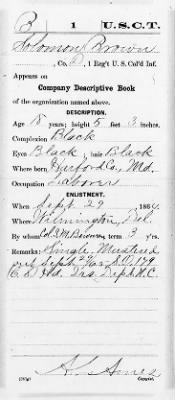 B | 1 | U.S.C.T.
Solomon Brown
, Co. D, 1 Reg't U. S. Col'd Inf.
Appears on
Company Descriptive Book
of the organization named above.
DESCRIPTION.
Age 18 years; height 5 feet 3 inches.
Complexion Black
Eyes Black; hair Black
Where born Harford Co, Md.
Occupation Laborer
ENLISTMENT.
When Sept 29, 1864.
Where Wilmington Del.
By whom term 3 y'rs.
Remarks: Single. Mustered
out Sept 29/65 S.O. 179
Hd. Qrs. Dept N.C.
Copyist.